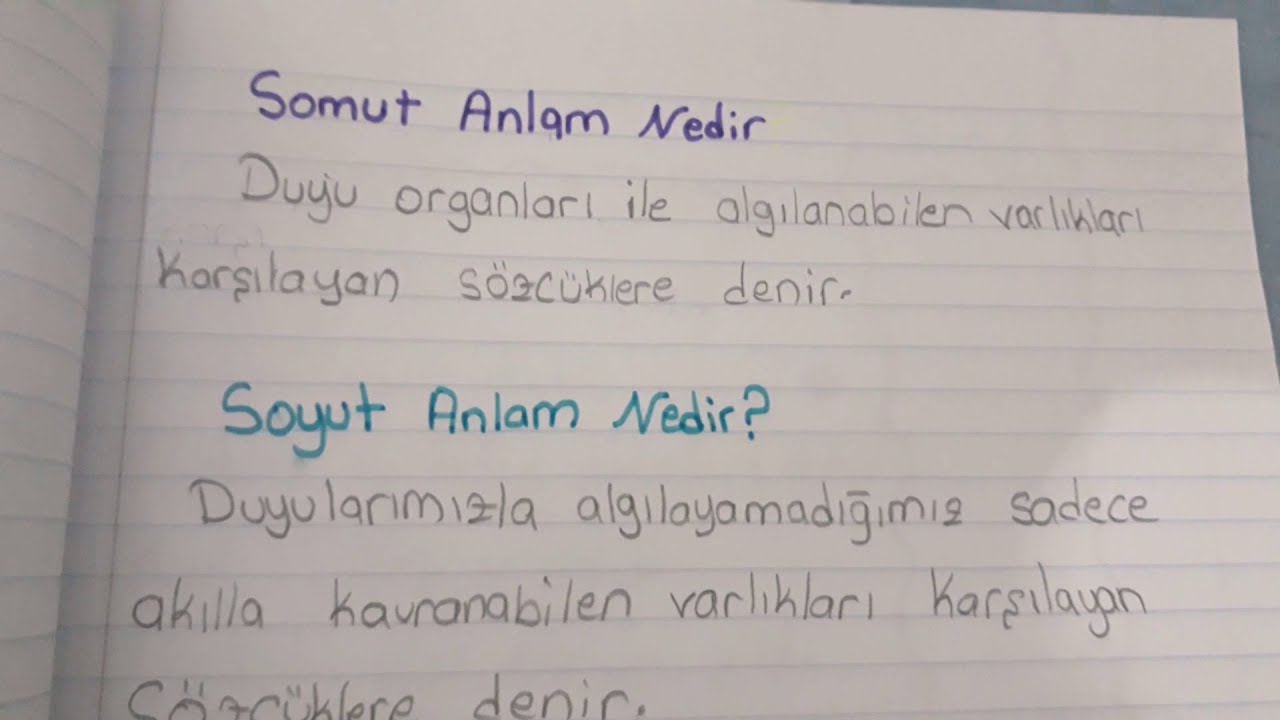 Somut Anlam Nedir
Duyu organları ile algılanabilen varlıkları
Karşılayan sözcüklere denir.
Soyut Anlam Nedir?
Duyularımızla algılayamadığımız sadece
akılla kavranabilen varlıkları Karşılayan
Sözcüklere denir.